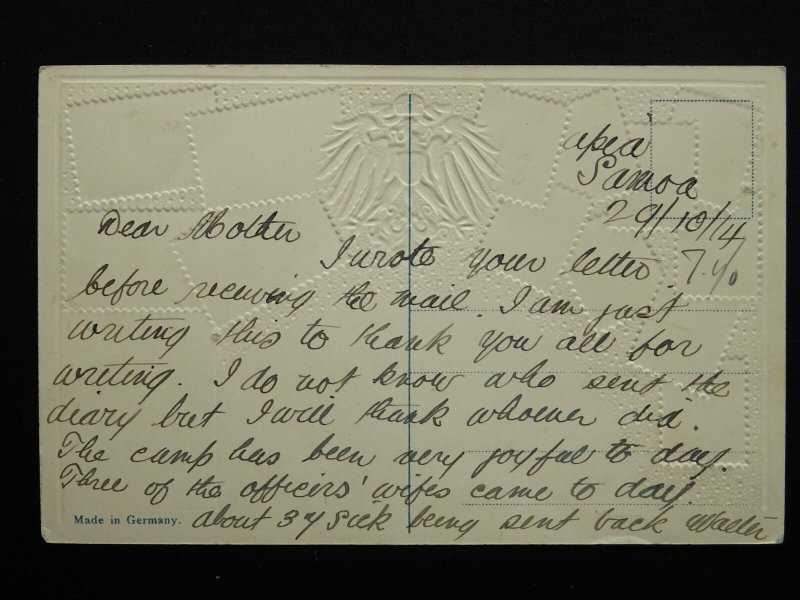 apia
Samoa
29/10/14
Dear Mother
I wrote your letter
before receiving the mail. I am just
writing this to thank you all for
writing. I do not know who sent the
diary but I will thank whoever did.
The camp has been very joyful to day.
Three of the officers' wifes came to day.
about 34 sick being sent back Walter
Made in Germany.